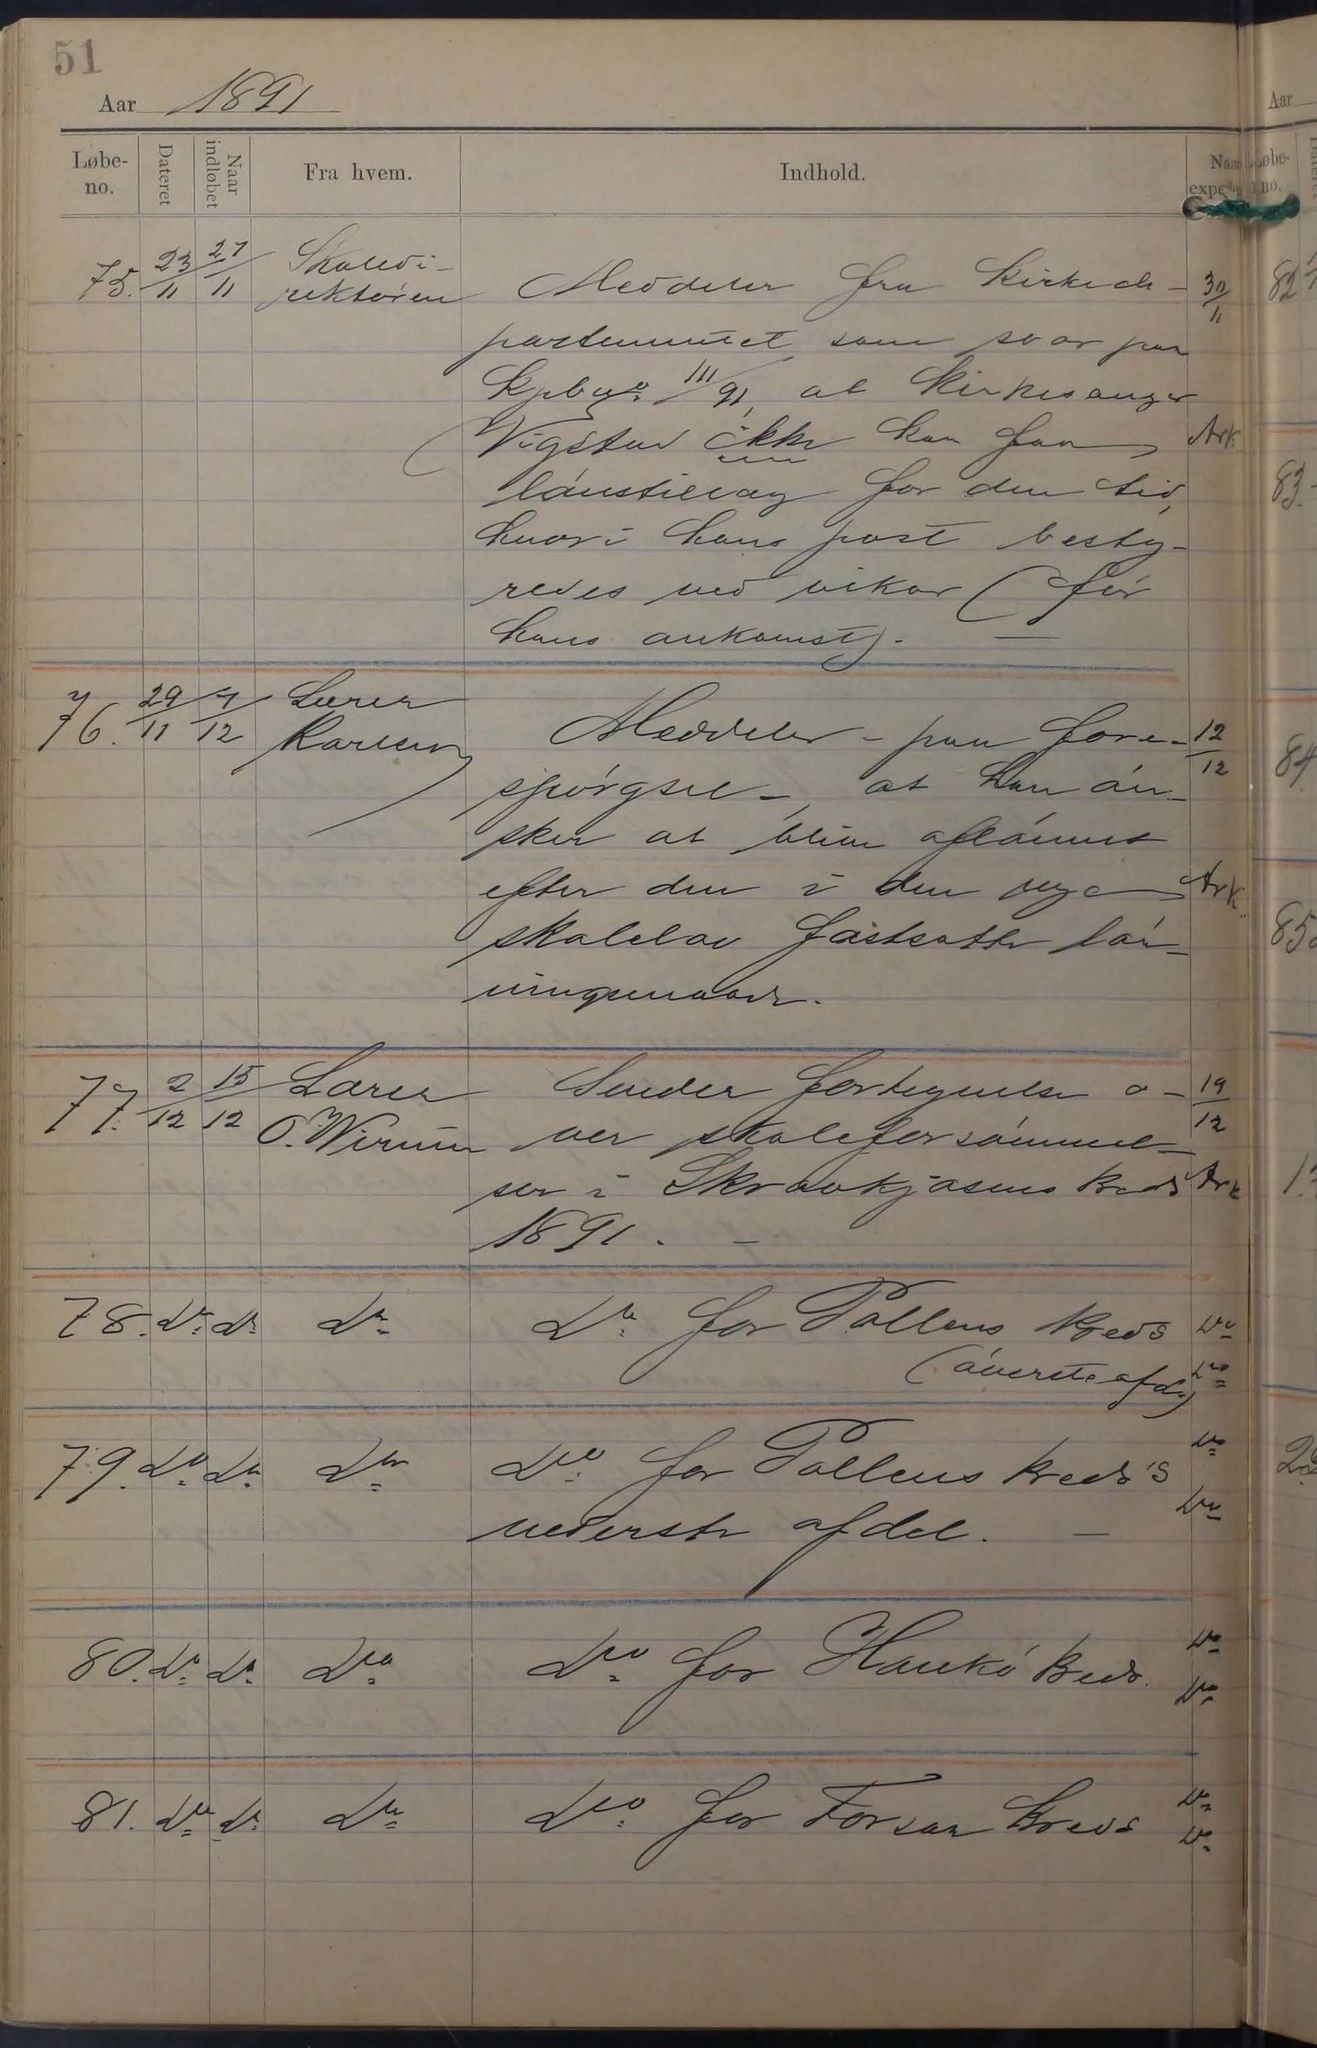 51
Aar 1891
Løbe-no. Dateret Naar indløbet Fra hvem. Indhold. Naar exped.
75. 23/11 27/11 Skoledi-
rektøren Meddeler fra Kirkede- 30/11
partementet som svar paa
Kpbno 111/91, at Kirkesanger
Vigstad ikke kan faa Ark.
lønstillæg for den tid,
hvori hans post besty-
redes ved vikar (før
hans ankomst). —
76. 29/11 4/12 Lærer
Karlsen Meddeler - paa fore- 12/12
spørgsel -, at han øn-
sker at blive aflønnet
efter den i den nye Ark.
skolelov fastsatte løn-
ningsmaade.
77. 2/12 15/12 Lærer Sender fortegnelse o- 19/12
O. Wirum ver skoleforsømmel-
ser i Skrovkjosens kreds Ark
1891. —
78. Do Do Do Do for Pollens kreds Do
(øverste afd.) Do
79. Do Do Do Do for Pollens kreds's Do
nederste afdel. — Do
80. Do Do Do Do for Hankø kreds. Do
Do
81. Do Do Do Do for Forsaa kreds Do
Do
Aar
Løbe-no.
82
83.
84
85